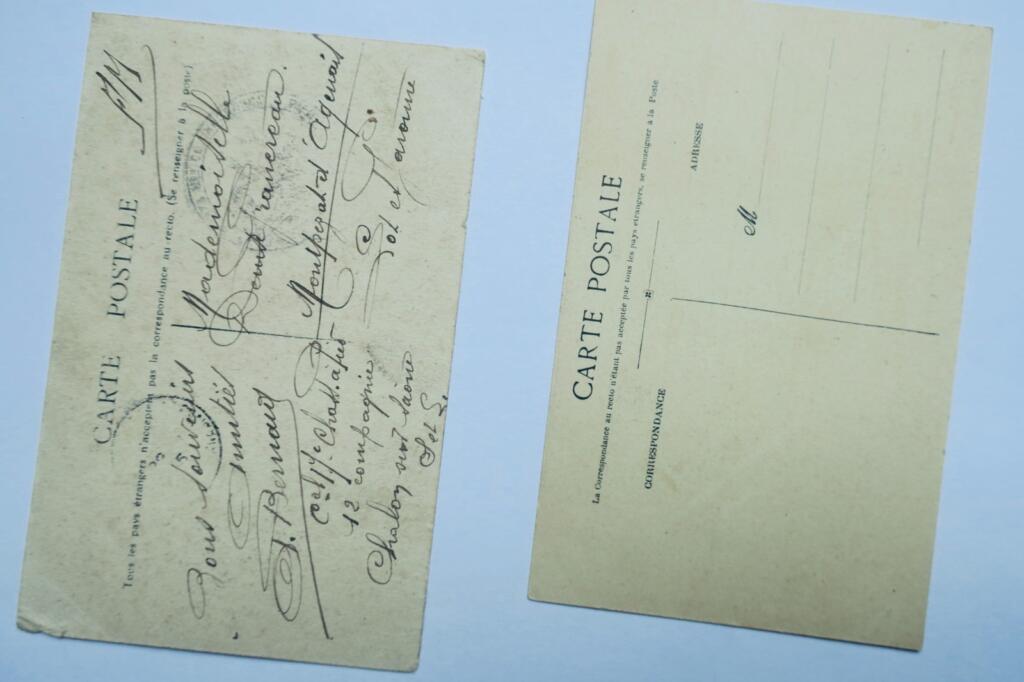 CARTE POSTALE
Tous les pays étrangers n'acceptent pas la correspondance au recto. (Se renseigner à la poste)
FM
Bons Souvenirs
Amitiés
Bernard
12 compagnie
Chalon sur Saone
S et L
Mademoiselle
Montpezat d'Agenais
Lot et Garonne
CARTE POSTALE
La Correspondance au recto n'étant pas acceptée par tous les pays étrangers, se renseigner à la Poste
CORRESPONDANCE
ADRESSE
M